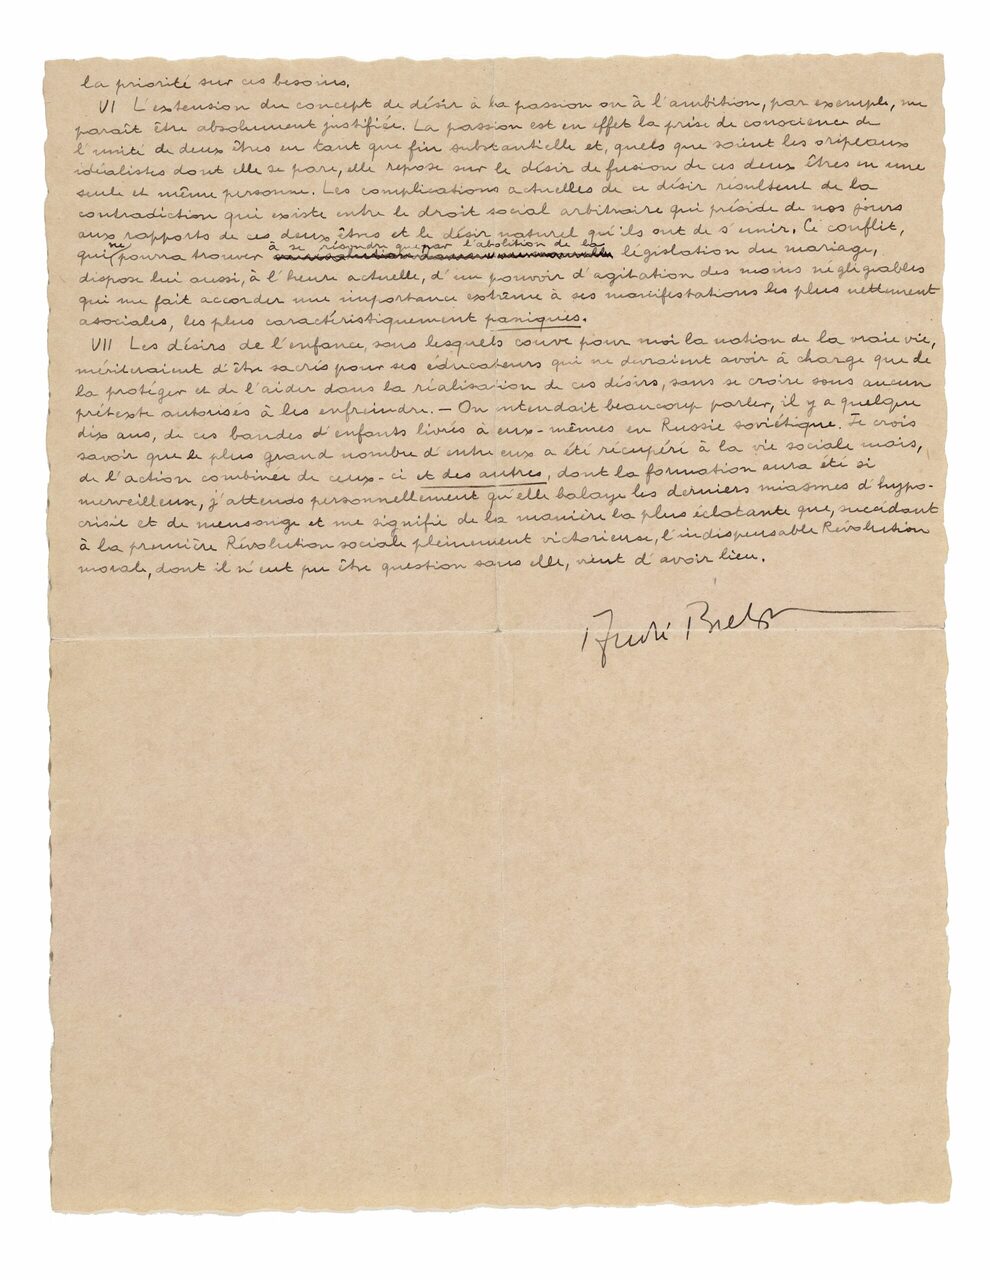 la priorité sur ces besoins.
VI L'extension du concept de désir à la passion ou à l'ambition, par exemple, me
paraît être absolument justifiée. La passion est en effet la prise de conscience de
l'unité de deux êtres en tant que fin substantielle et, quels que soient les oripeaux
idéalistes dont elle se pare, elle repose sur le désir de fusion de ces deux êtres en une
seule et même personne. Les complications actuelles de ce désir résultent de la
contradiction qui existe entre le droit social arbitraire qui préside de nos jours
aux rapports de ces deux êtres et le désir naturel qu'ils ont de s'unir. Ce conflit,
ne à se résoudre que par l'abolition de la
qui pourra trouver législation du mariage,
dispose lui aussi, à l'heure actuelle, d'un pouvoir d'agitation des moins négligeables
qui me fait accorder une importance extrême à ses manifestations les plus nettement
asociales, les plus caractéristiquement paniques.
VII Les désirs de l'enfance, sans lesquels couve pour moi la notion de la vraie vie,
mériteraient d'être sacrés pour ses éducateurs qui ne devraient avoir à charge que de
la protéger et de l'aider dans la réalisation de ces désirs, sans se croire sous aucun
prétexte autorisés à les enfreindre. — On entendait beaucoup parler, il y a quelque
dix ans, de ces bandes d'enfants livrés à eux-mêmes en Russie soviétique. Je crois
savoir que le plus grand nombre d'entre eux a été récupéré à la vie sociale mais,
de l'action combinée de ceux-ci et des autres, dont la formation aura été si
merveilleuse, j'attends personnellement qu'elle balaye les derniers miasmes d'hypo-
crisie et de mensonge et me signifie de la manière la plus éclatante que, succédant
à la première Révolution sociale pleinement victorieuse, l'indispensable Révolution
morale, dont il n'eut pu être question sans elle, vient d'avoir lieu.
André Breton